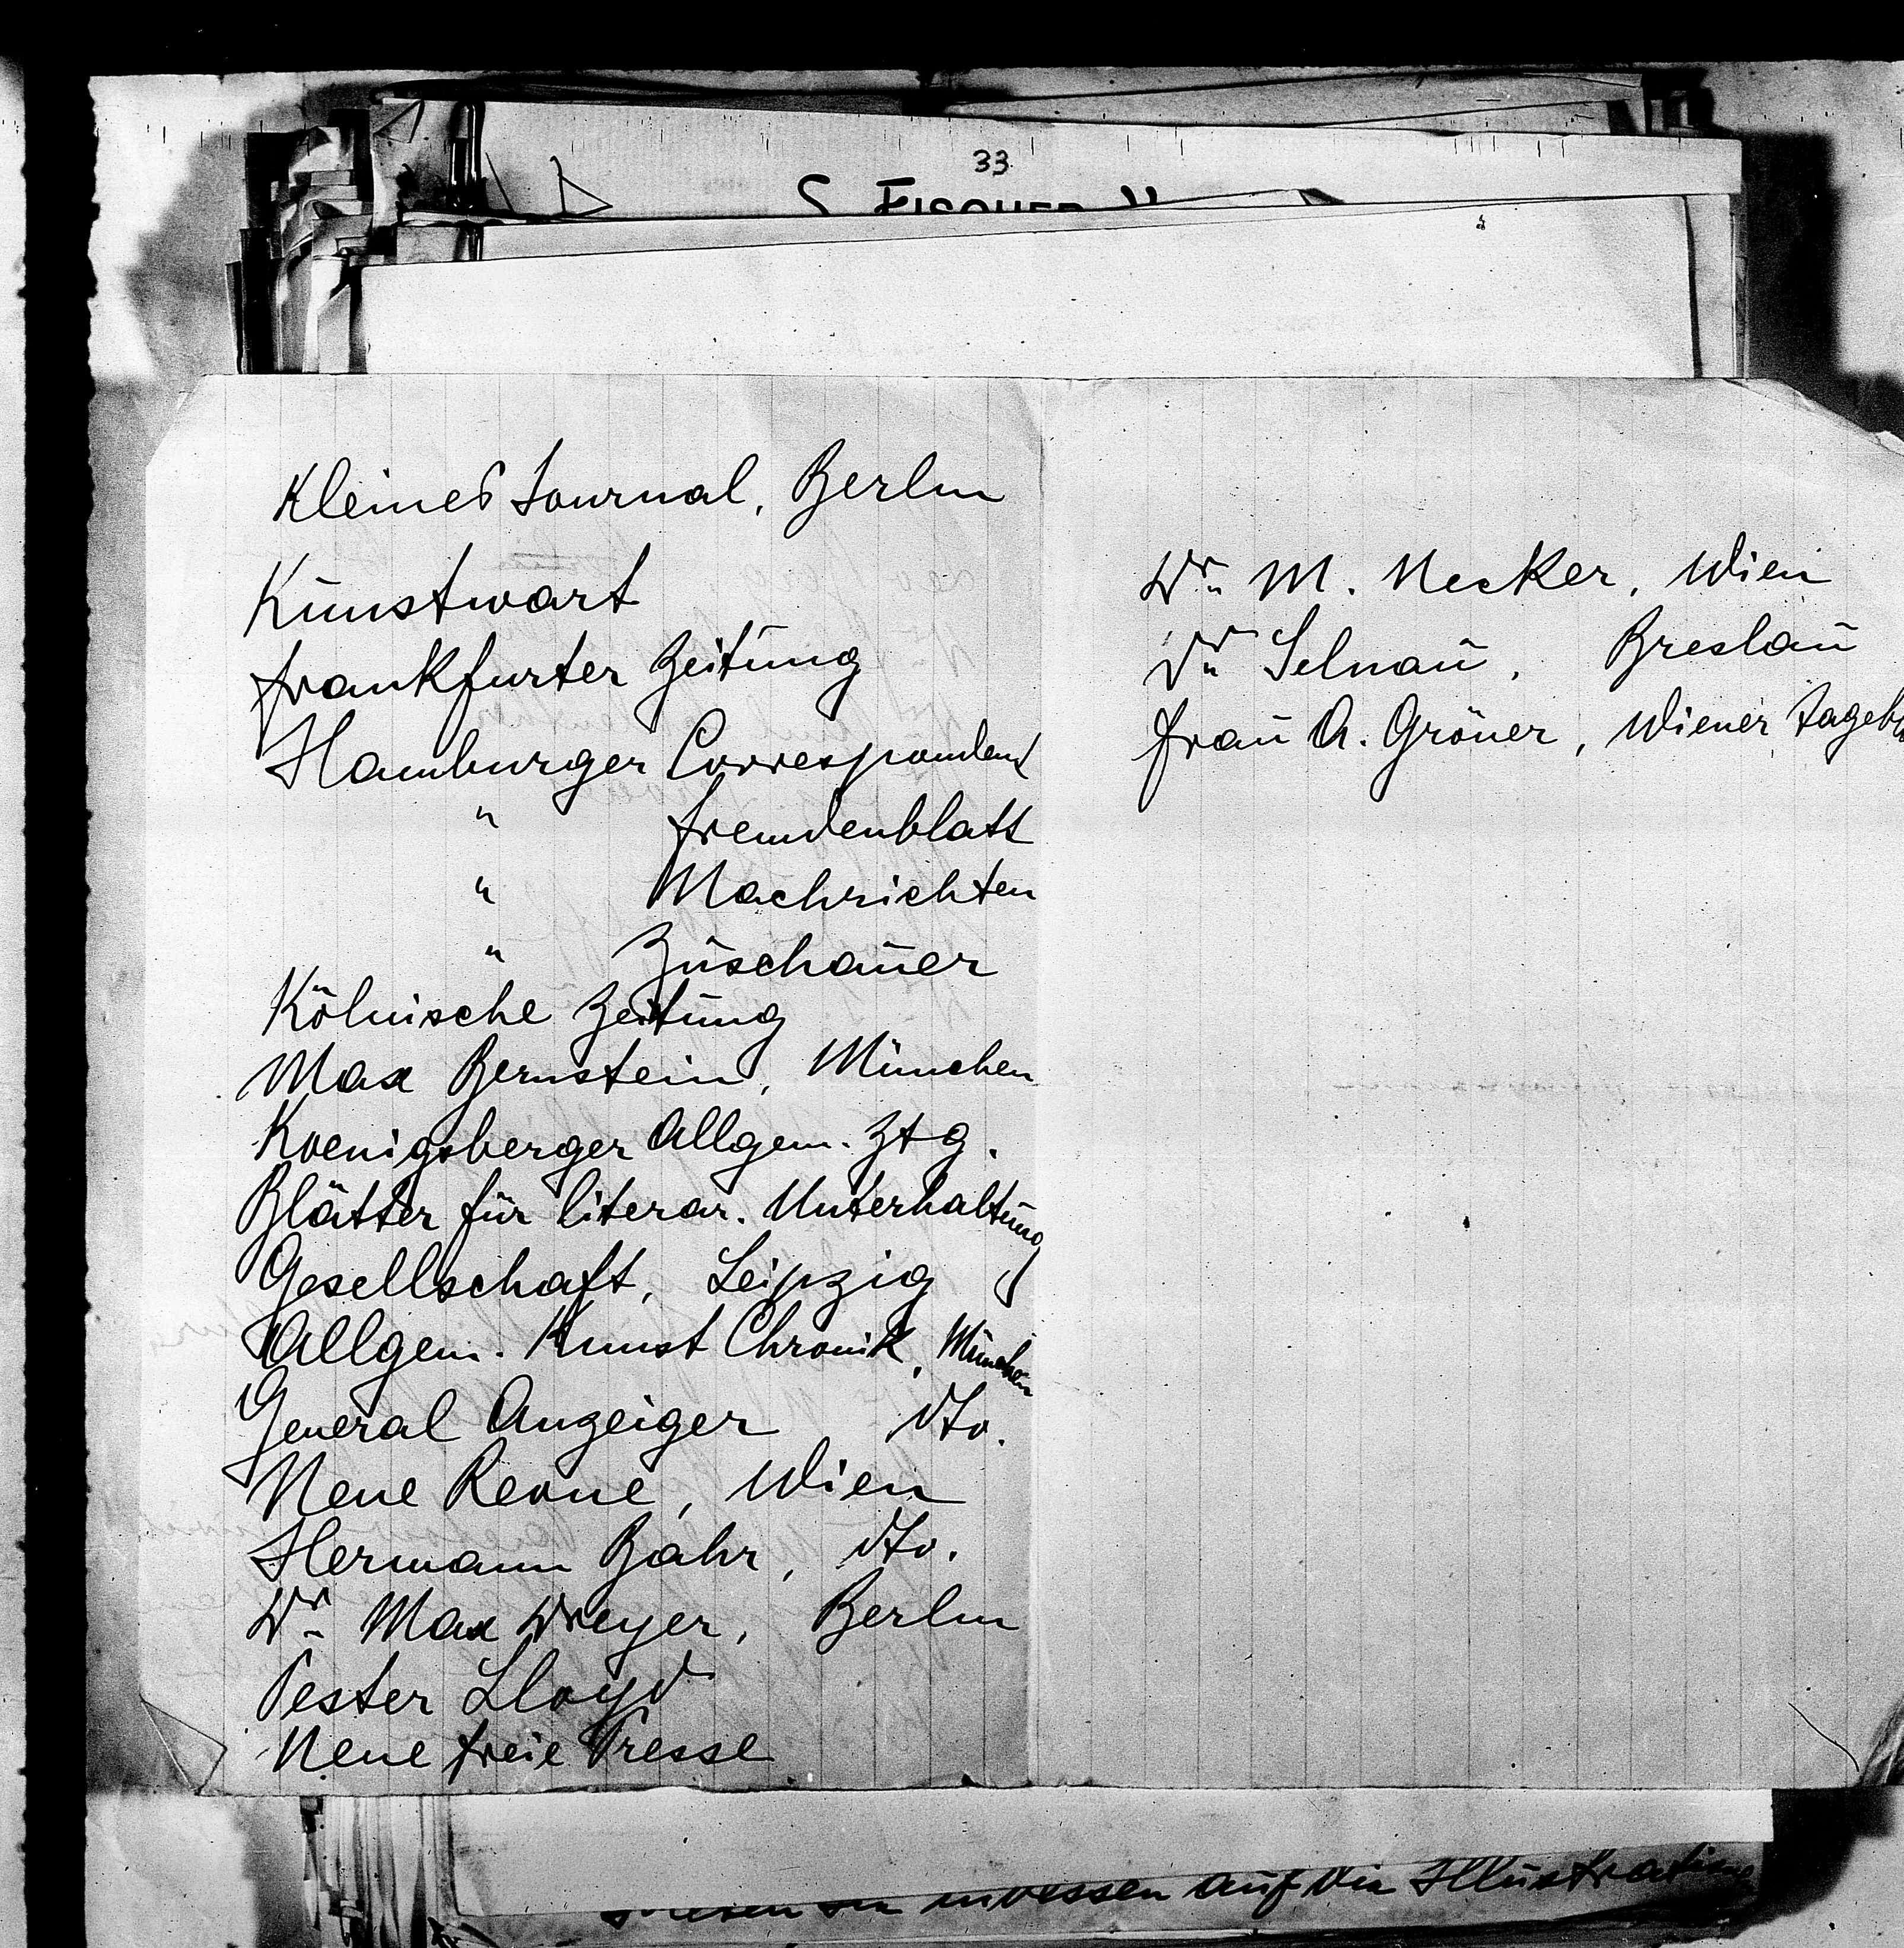 33
S. FISCHER
Kleines Journal, Berlin
Kunstwart
Frankfurter Zeitung
Hamburger Correspondent
" Fremdenblatt
" Nachrichten
" Zuschauer
Kölnische Zeitung
Max Bernstein, München
Koenigsberger Allgem. Ztg.
Blätter für literar. Unterhaltung
Gesellschaft, Leipzig
Allgem. Kunst Chronik, München
General Anzeiger dto.
Neue Revue, Wien
Hermann Bahr, dto.
Dr. Max Dreyer, Berlin
Pester Lloyd
Neue freie Presse
Dr. M. Necker, Wien
Dr. Selnau, Breslau
Frau A. Gröner, Wiener Tagebl
indessen auf die Illustration